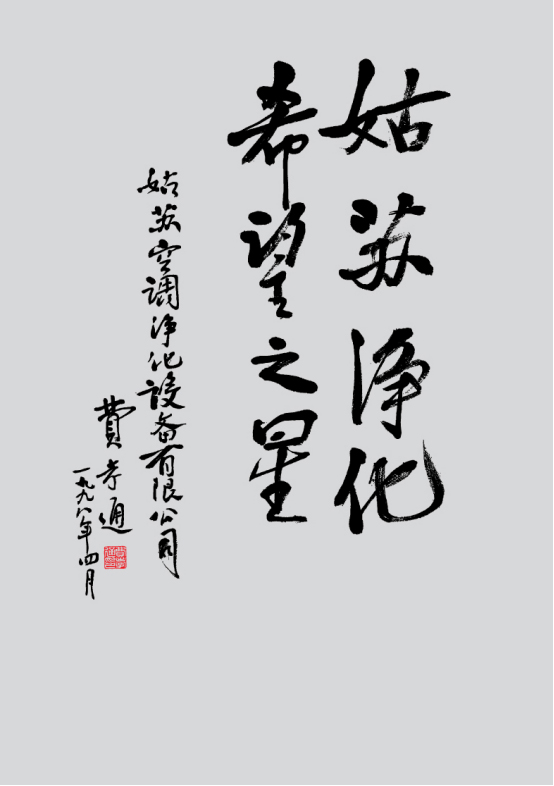 姑苏净化
希望之星
姑苏空调净化设备有限公司
費孝通
一九九八年四月